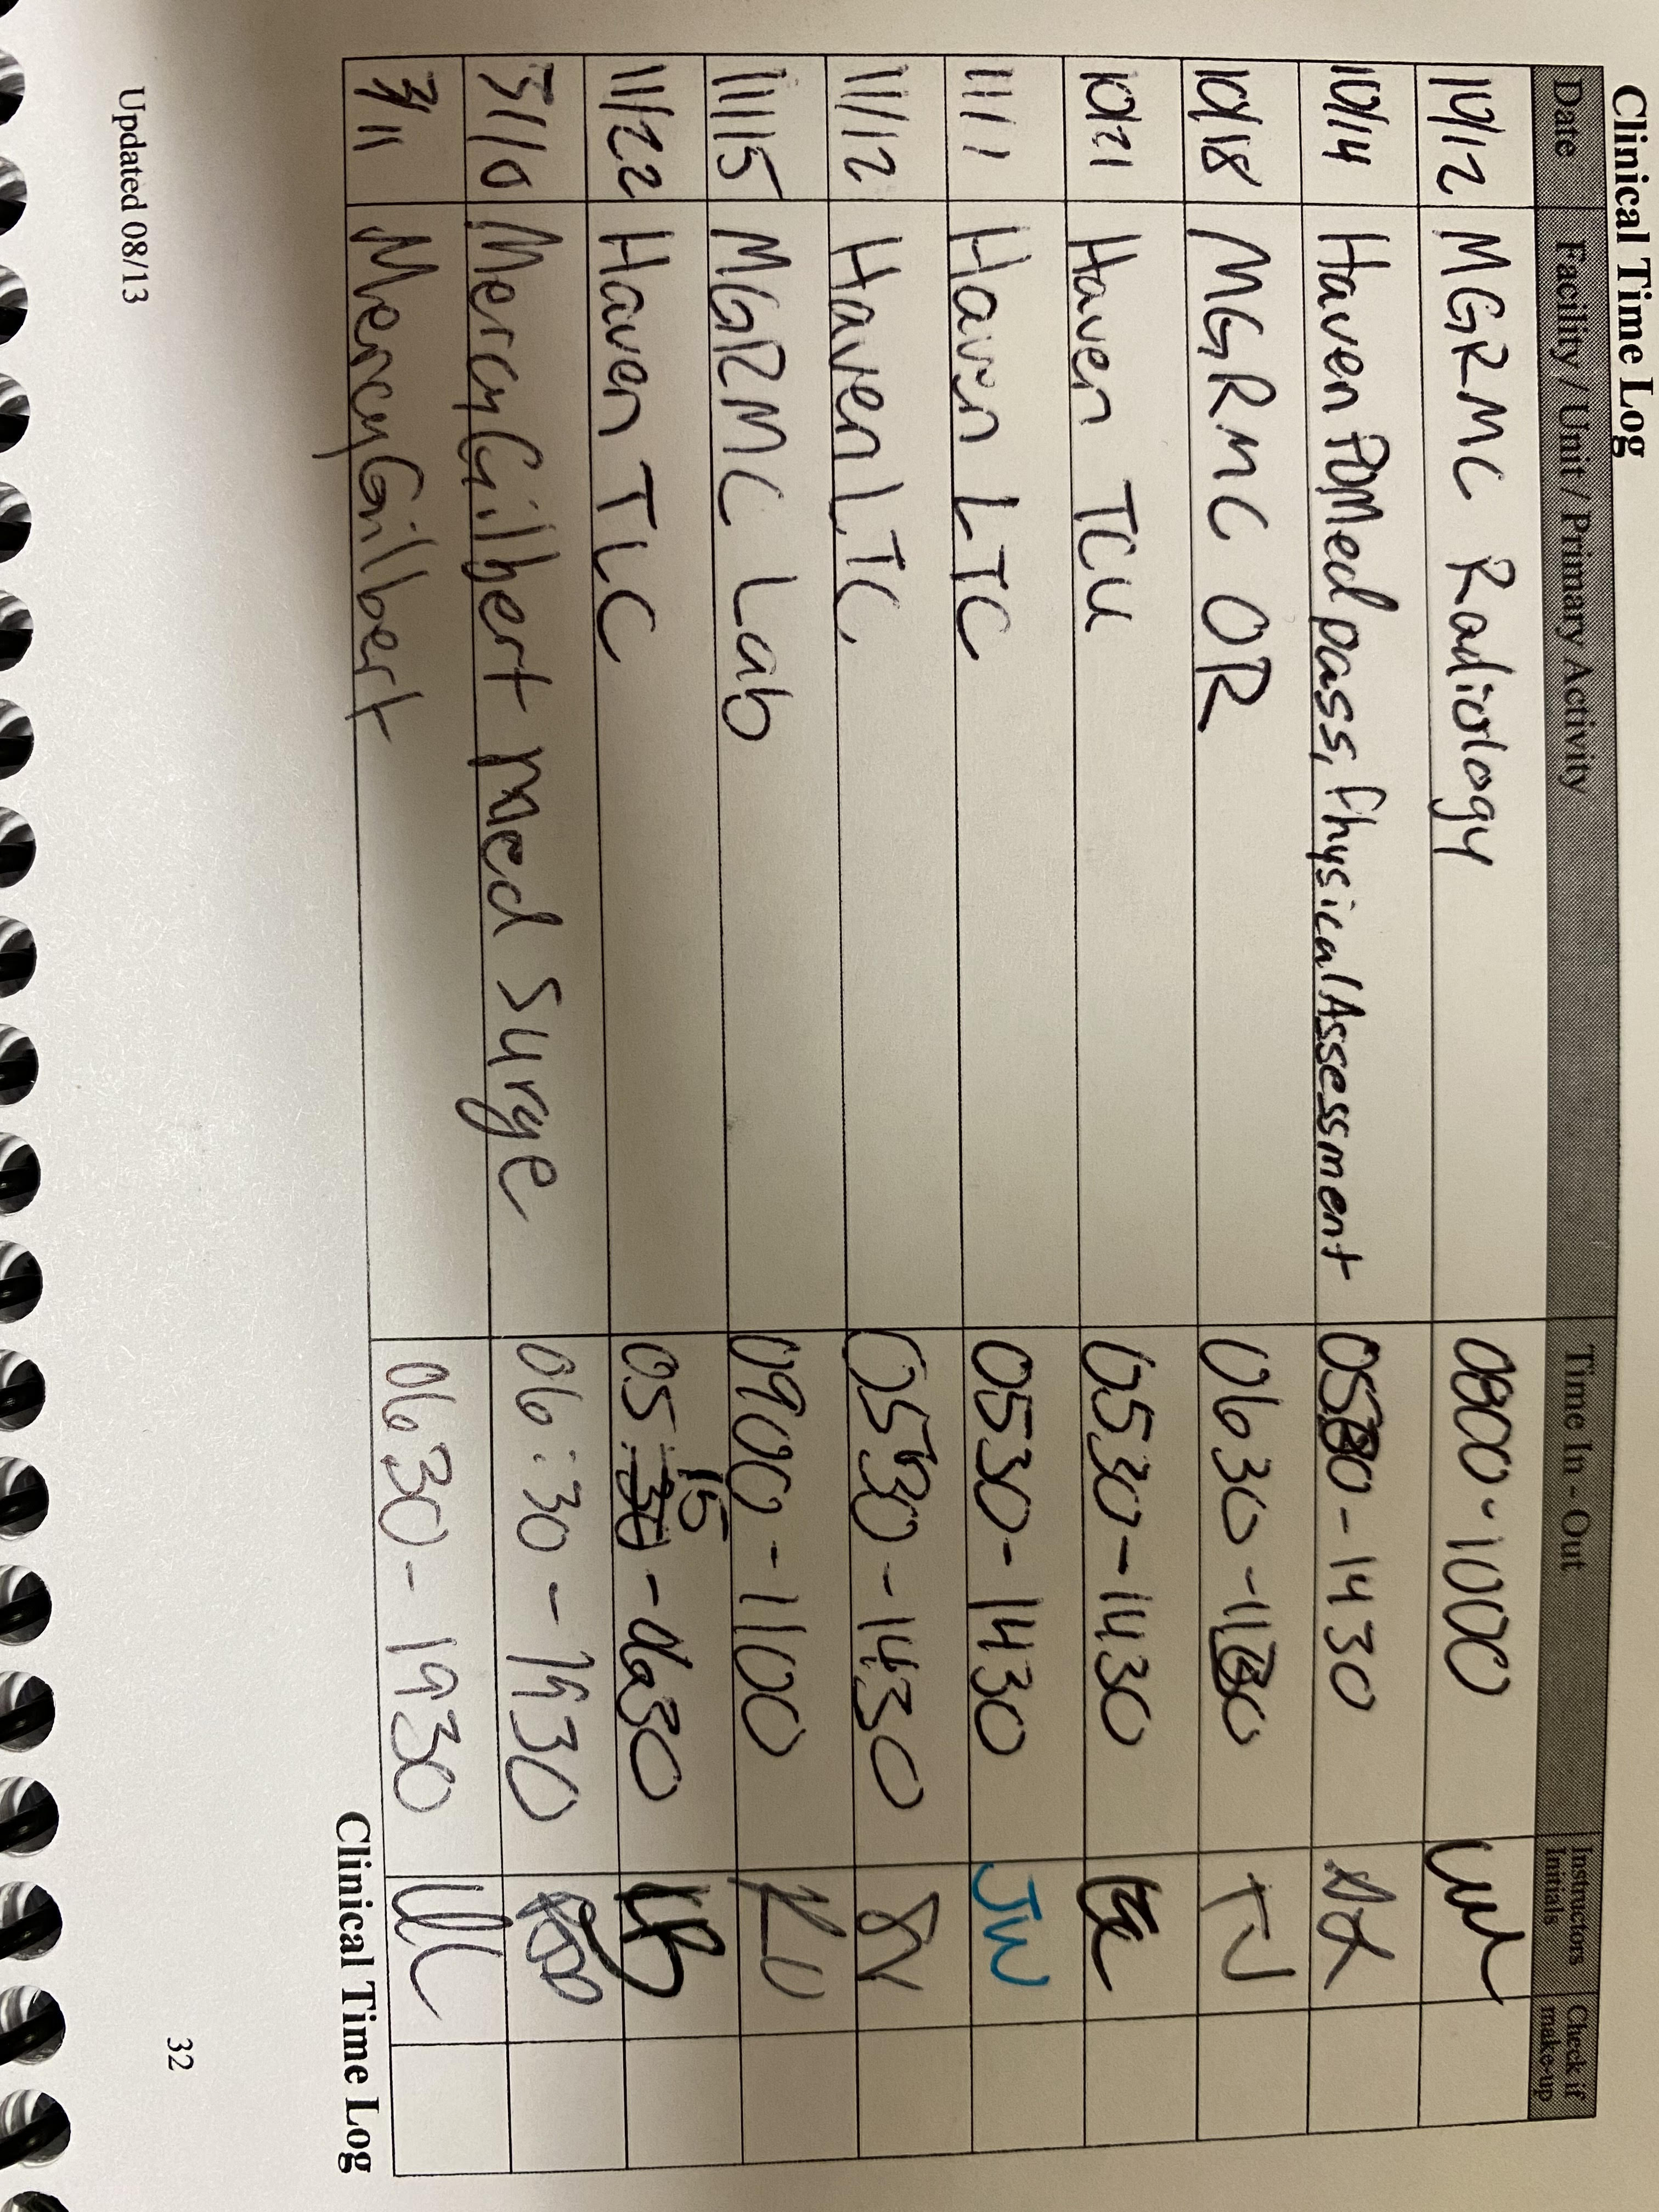 Clinical Time Log
Date Facility / Unit / Primary Activity Time In - Out Instructors Initials Check if make-up
10/12 MGRMC Radiology 0800-1000
10/14 Haven Med pass, Physical Assessment 0530-1430
10/18 MGRMC OR 0630-1130 TJ
10/21 Haven TCU 0530-1430
11/1 Haven LTC 0530-1430 JW
11/12 Haven LTC 0530-1430
11/15 MGRMC Lab 0900-1100
11/22 Haven TLC 05:15
3/10 Mercy Gilbert Med Surge 06:30-1930
3/11 Mercy Gilbert 0630-1930
Clinical Time Log
Updated 08/13 32